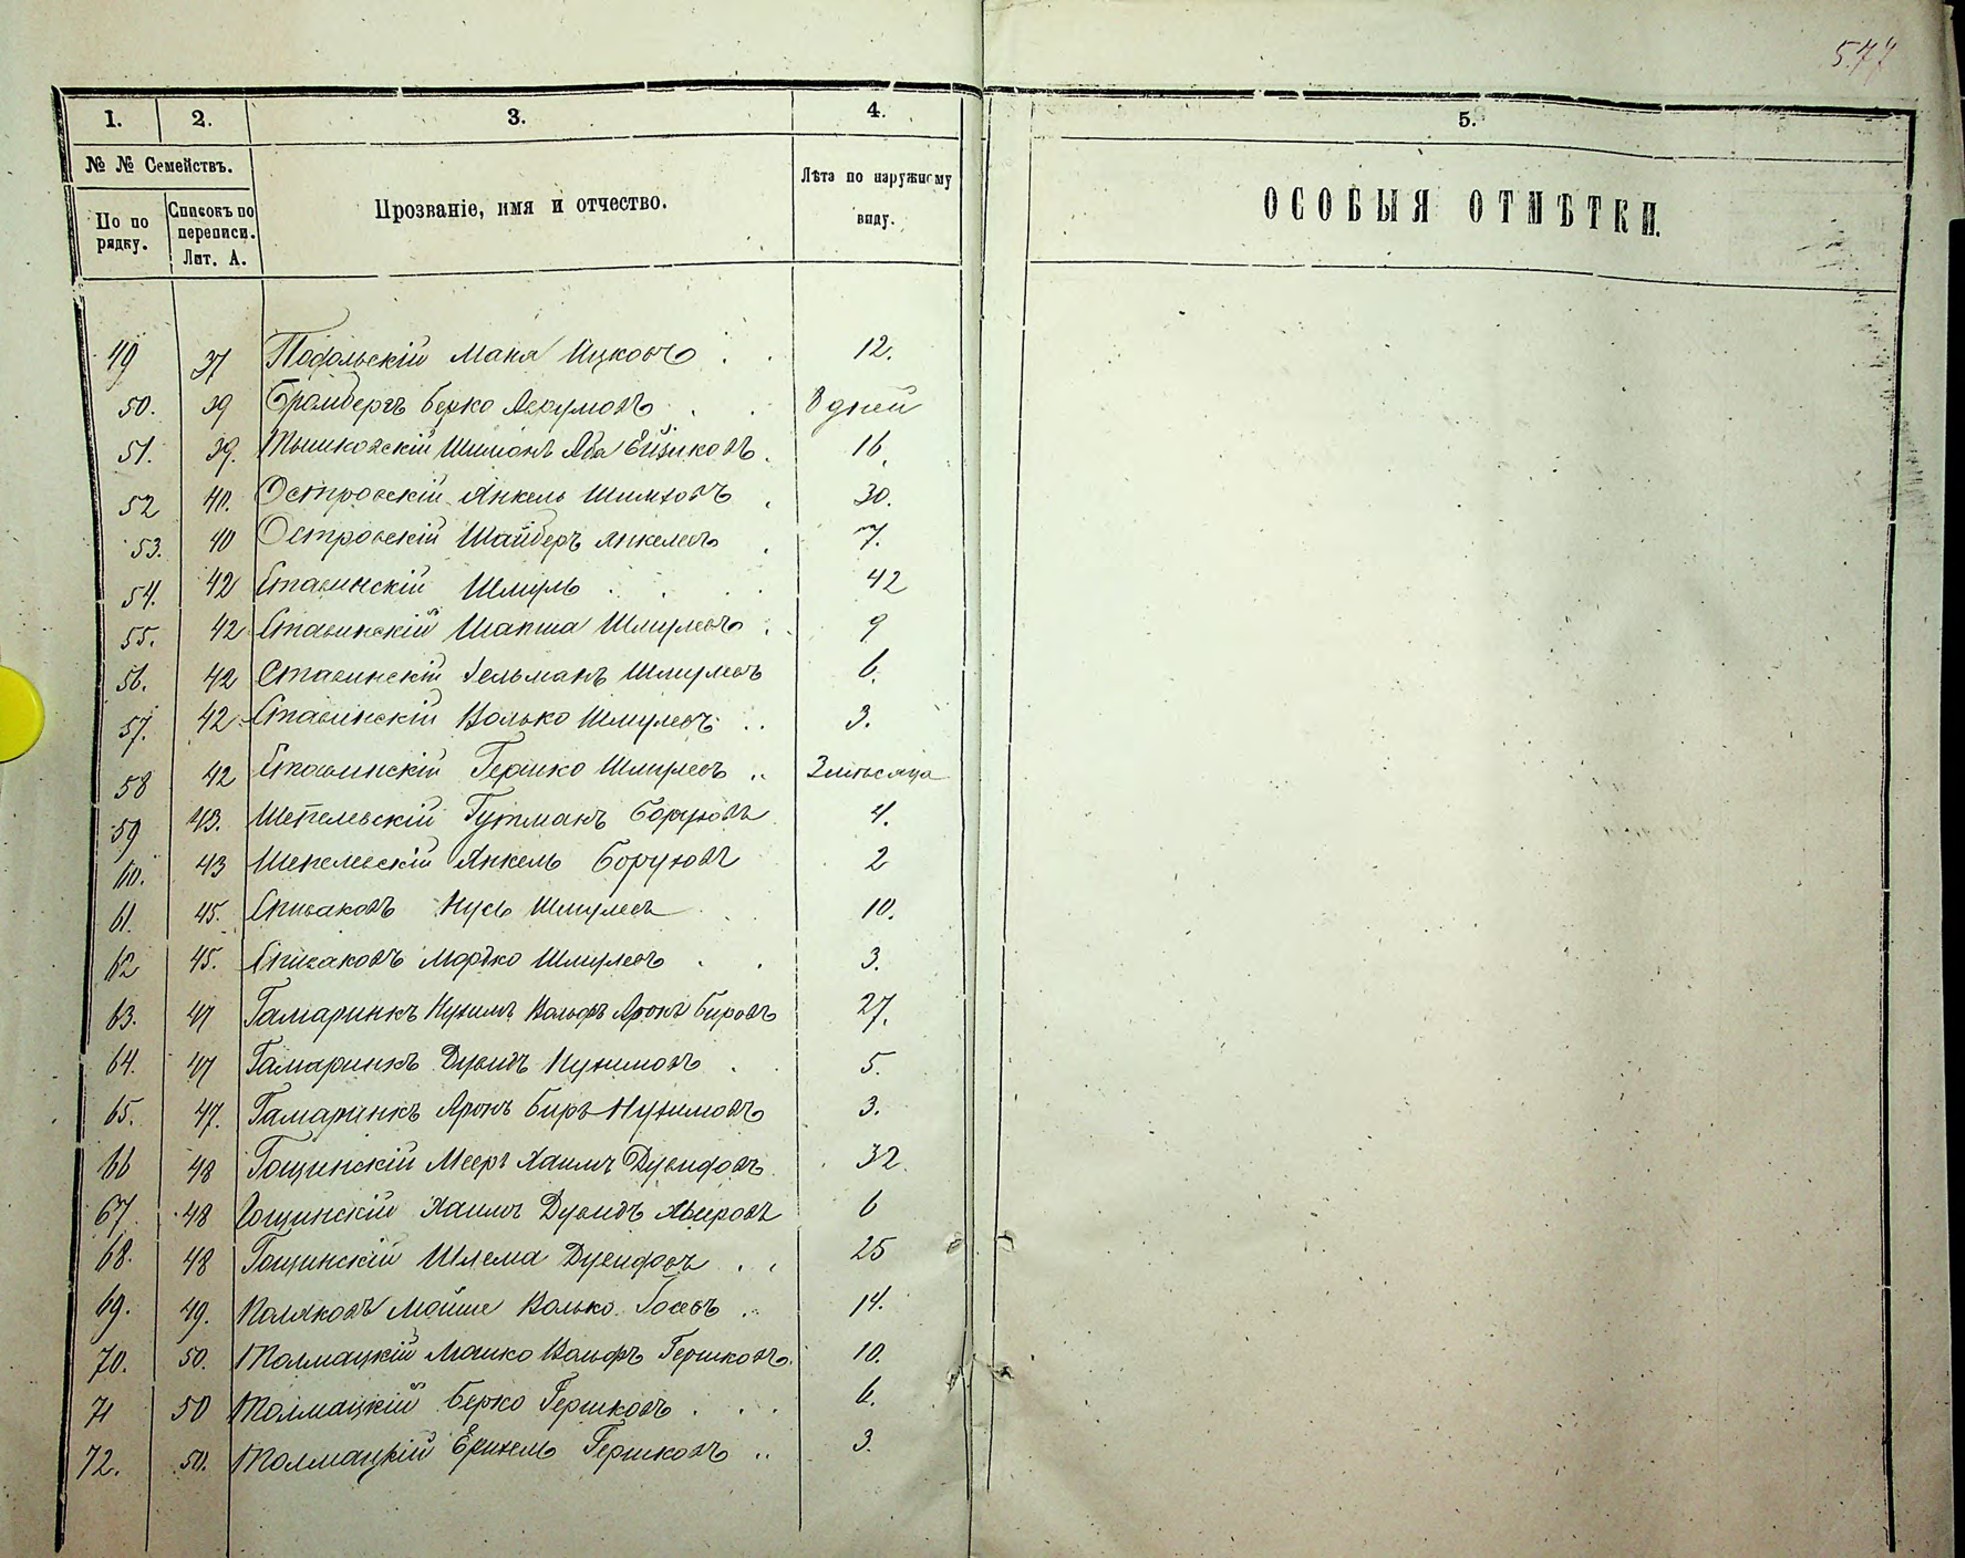 577
1. 2. 3. 4. 5.
№ № Семействъ.
По по рядку.
Списокъ по переписи. Лит. А.
Прозваніе, имя и отчество.
Лѣта по наружному виду.
ОСОБЫЯ ОТМѢТКИ.
49 37 Подольскій Мана Ицковъ . . 12.
50. 39 Бромбергъ Берко . . 8 дней
51. 39. Тышковскій Шимонъ Аба . 16.
52 40. Островскій Янкель Шимховъ . 30.
53. 40 Островскій Янкелевъ . 7.
54. 42 Ставинскій Шмуль . . . . 42
55. 42 Ставинскій Шапша Шмулевъ . . 9
56. 42 Ставинскій Зельманъ Шмулевъ 6.
57. 42 Ставинскій Волько Шмулевъ . . 3.
58 42 Ставинскій Гершко Шмулевъ .. 3 мѣсяца
59 43. Шепелевскій Гутманъ Боруховъ 4.
60. 43 Шепелевскій Янкель Боруховъ 2
61. 45. Спиваковъ Нусъ Шмулевъ . . 10.
62 45. Спиваковъ Мордко Шмулевъ . . 3.
63. 47 Гамаринкъ Нухимъ Вольфъ Аронъ Бировъ 27.
64. 47 Гамаринкъ Дувидъ Нухимовъ . . 5.
65. 47. Гамаринкъ Аронъ Биръ Нухимовъ 3.
66 48 Гощинскій Мееръ Хаимъ Дувидовъ 32.
67. 48 Гощинскій Хаимъ Дувидъ 6
68. 48 Гощинскій Шлема Дувидовъ . . 25
69. 49. Поляковъ Мойше Волько .. 14.
70. 50. Толмацкій Мошко Вольфъ Гершковъ. 10.
71 50 Толмацкій Берко Гершковъ . . . 6.
72. 50. Толмацкій Гершковъ .. 3.